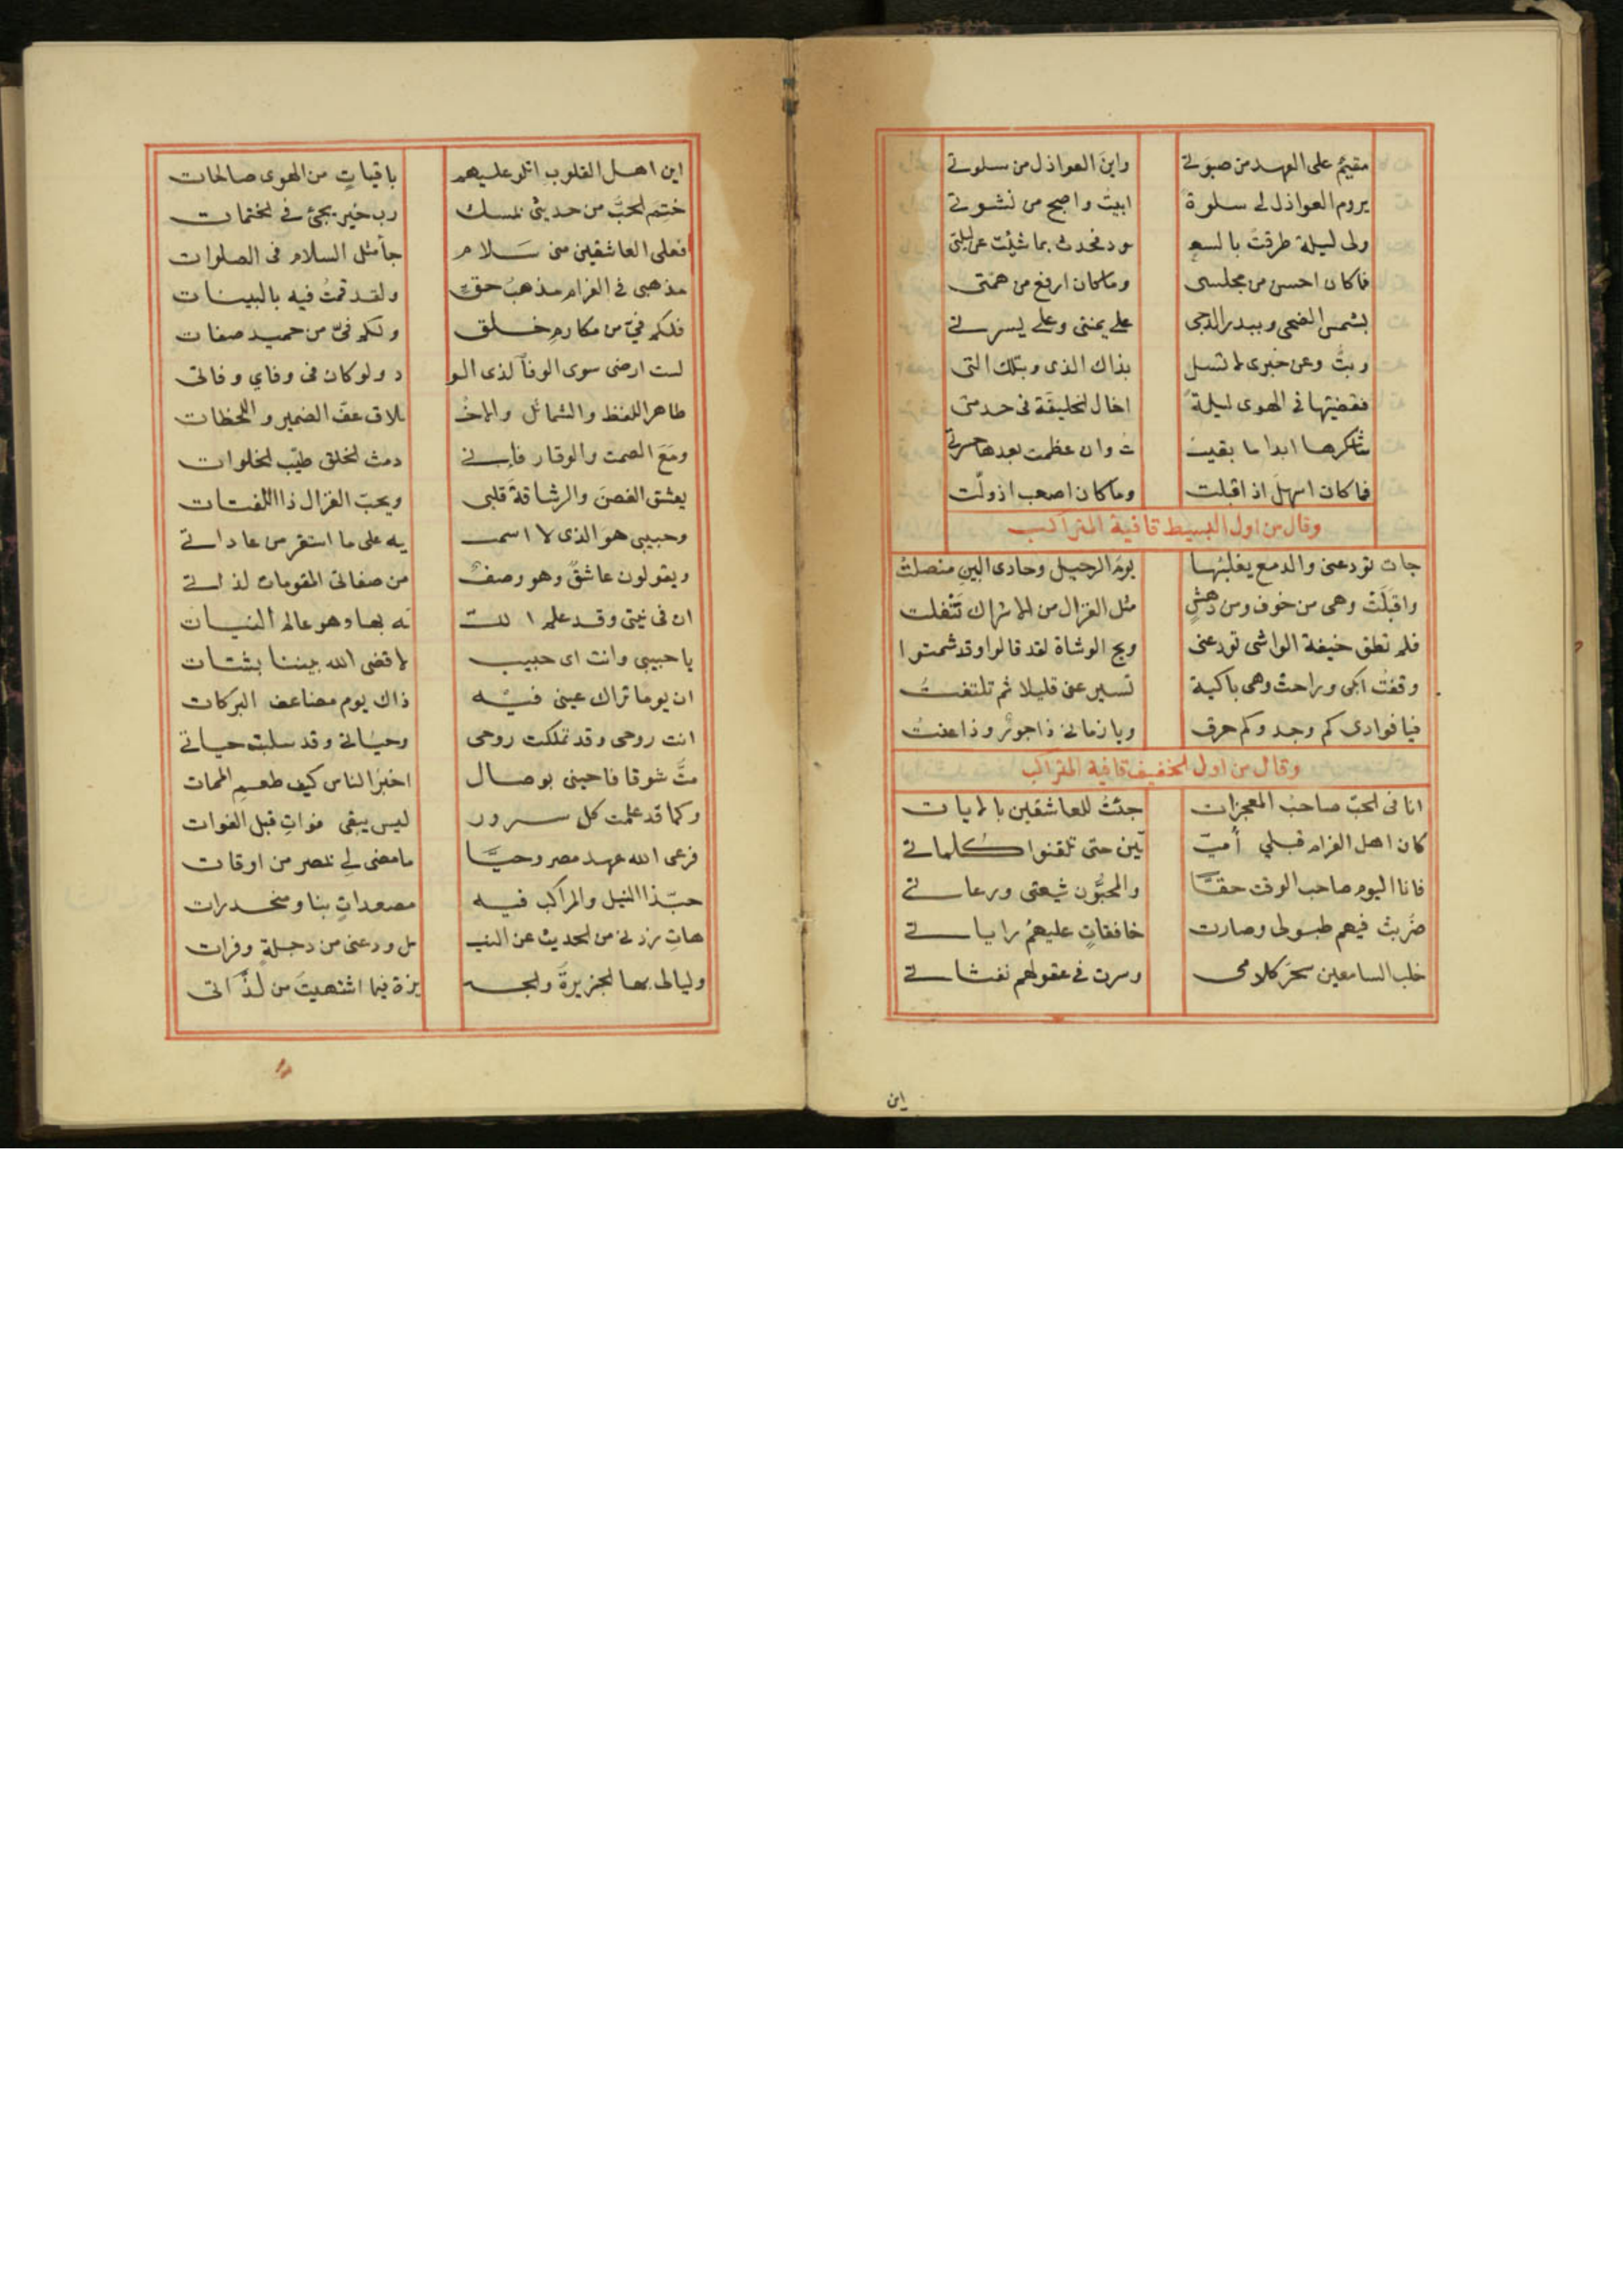 مقيمٌ على العهد من صبوتي واين العواذل من سلوتي
يروم العواذل لي سلوة ابيتُ واصبح من نشوتي
ولي ليلة طرقت بالسعو د فحدث بما شئت عن ليلتي
فما كان احسن من مجلسي وما كان ارفع من همتي
بشمس الضحى وببدر الدجى على يمنتي وعلى يسرتي
وبتُّ وعن خبري لا تسل بذاك الذي وبتلك التي
فقضيتها في الهوى ليلةً اخال الخليفة في خدمتي
سأشكرها ابدا ما بقيت ت وان عظمت بعدها حسرتي
فما كان اسهل اذ اقبلت وما كان اصعب اذ ولّت
وقال من اول البسيط قافية المتراكب
جات تودعني والدمع يغلبُها يومَ الرحيل وحادي البين منصلتُ
واقبلَتْ وهي من خوف ومن دهشٍ مثل الغزال من الاشراك تَنْفلت
فلم تطق خيفة الواشي تودعني ويح الوشاة لقد قالوا وقد شمتوا
وقفتُ ابكي وراحتْ وهي باكية تسير عني قليلا ثم تلتفتُ
فيا فوادي كم وجد وكم حرق ويا زماني ذا جورٌ وذا عنتُ
وقال من اول الخفيف قافية المتراكب
انا في الحبّ صاحبُ المعجزات جئتُ للعاشقين بالايات
كان اهل الغرام قبلي أميّ يّين حتى تلقنوا كلماتي
فانا اليوم صاحب الوقت حقًّا والمحبُّون شيعتي ورعاتي
ضُربتْ فيهم طبولي وصارت خافقاتٍ عليهمُ راياتي
خلب السامعين سحرُ كلامي وسرت في عقولهم نفثاتي
اين
اين اهل القلوب اتلو عليهم باقياتٍ من الهوى صالحات
ختِم الحبُّ من حديثي بمسك رب خيرٍ يجئ في الختمات
فعلى العاشقين مني سَلام جأ مثل السلام في الصلوات
مذهبي في الغرام مذهبُ حقٍّ ولقد قمتُ فيه بالبينات
فلكم فيّ من مكارمِ خلق ولكم فيّ من حميد صفات
لست ارضى سوى الوفآ لذي الو د ولو كان في وفاي وفاتي
طاهر اللفظ والشمائل والاخْـ ـلاق عفّ الضمير واللحظات
ومَعَ الصمت والوقار فاني دمث الخلق طيّب الخلوات
يعشق الغصنَ والرشاقةَ قلبي ويحبّ الغزال ذا اللفتات
وحبيبي هو الذي لا اسمـ يه على ما استقر من عاداتي
ويقولون عاشقٌ وهو وصفٌ من صفاتي المقومات لذاتي
ان في نيتي وقد علم اللـ ـه بها وهو عالم النيات
يا حبيبي وانت اى حبيب لا قضى الله بيننا بشتات
ان يوما تراك عيني فيه ذاك يوم مضاعف البركات
انت روحي وقد تملكت روحي وحيَاتي وقد سلبت حياتي
متُّ شوقا فاحيني بوصال اخبرُ الناس كيف طعم الممات
وكما قد علمت كل سرور ليس يبقى فواتِ قبل الفوات
فرعى الله عهد مصر وحيَّا ما مضى لي بمصر من اوقات
حبّذا النيل والمراكب فيه مصعداتٍ بنا ومنحدرات
هاتِ زدني من الحديث عن النيـ ـل ودعني من دجلةٍ وفرات
وليالى بها الجزيرةَ والجـ يزة فيما اشتهيتَ من لذّاتي